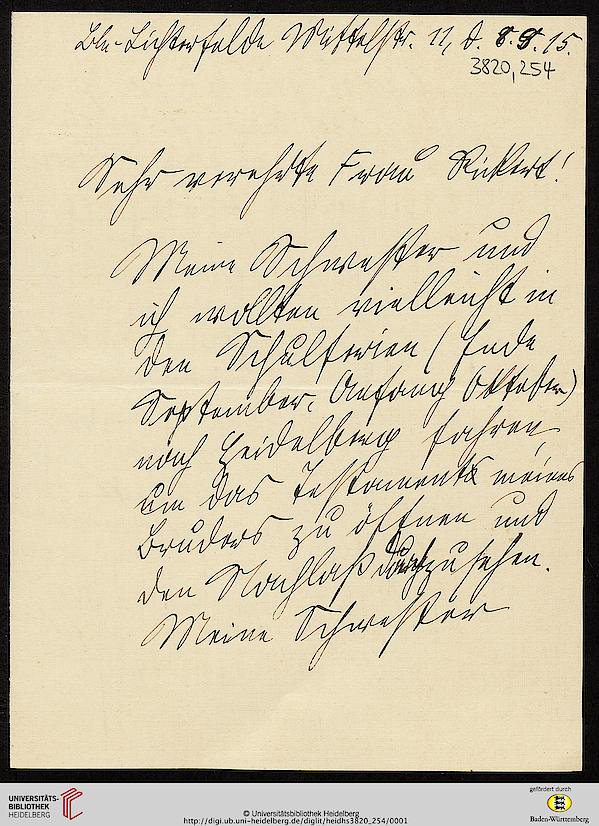 Bln-Lichterfelde Wüttelstr. 11, d. 8.9.15.
3820,254
Sehr verehrte Frau Rickert!
Meine Schwester und
ich wollten vielleicht in
den Schulferien (Ende
September, Anfang Oktober)
nach Heidelberg fahren,
um das Testament meines
Bruders zu öffnen und
den Nachlaß durchzusehen.
Meine Schwester
UNIVERSITÄTS-
BIBLIOTHEK
HEIDELBERG
© Universitätsbibliothek Heidelberg
http://digi.ub.uni-heidelberg.de/diglit/heidhs3820_254/0001
gefördert durch
Baden-Württemberg